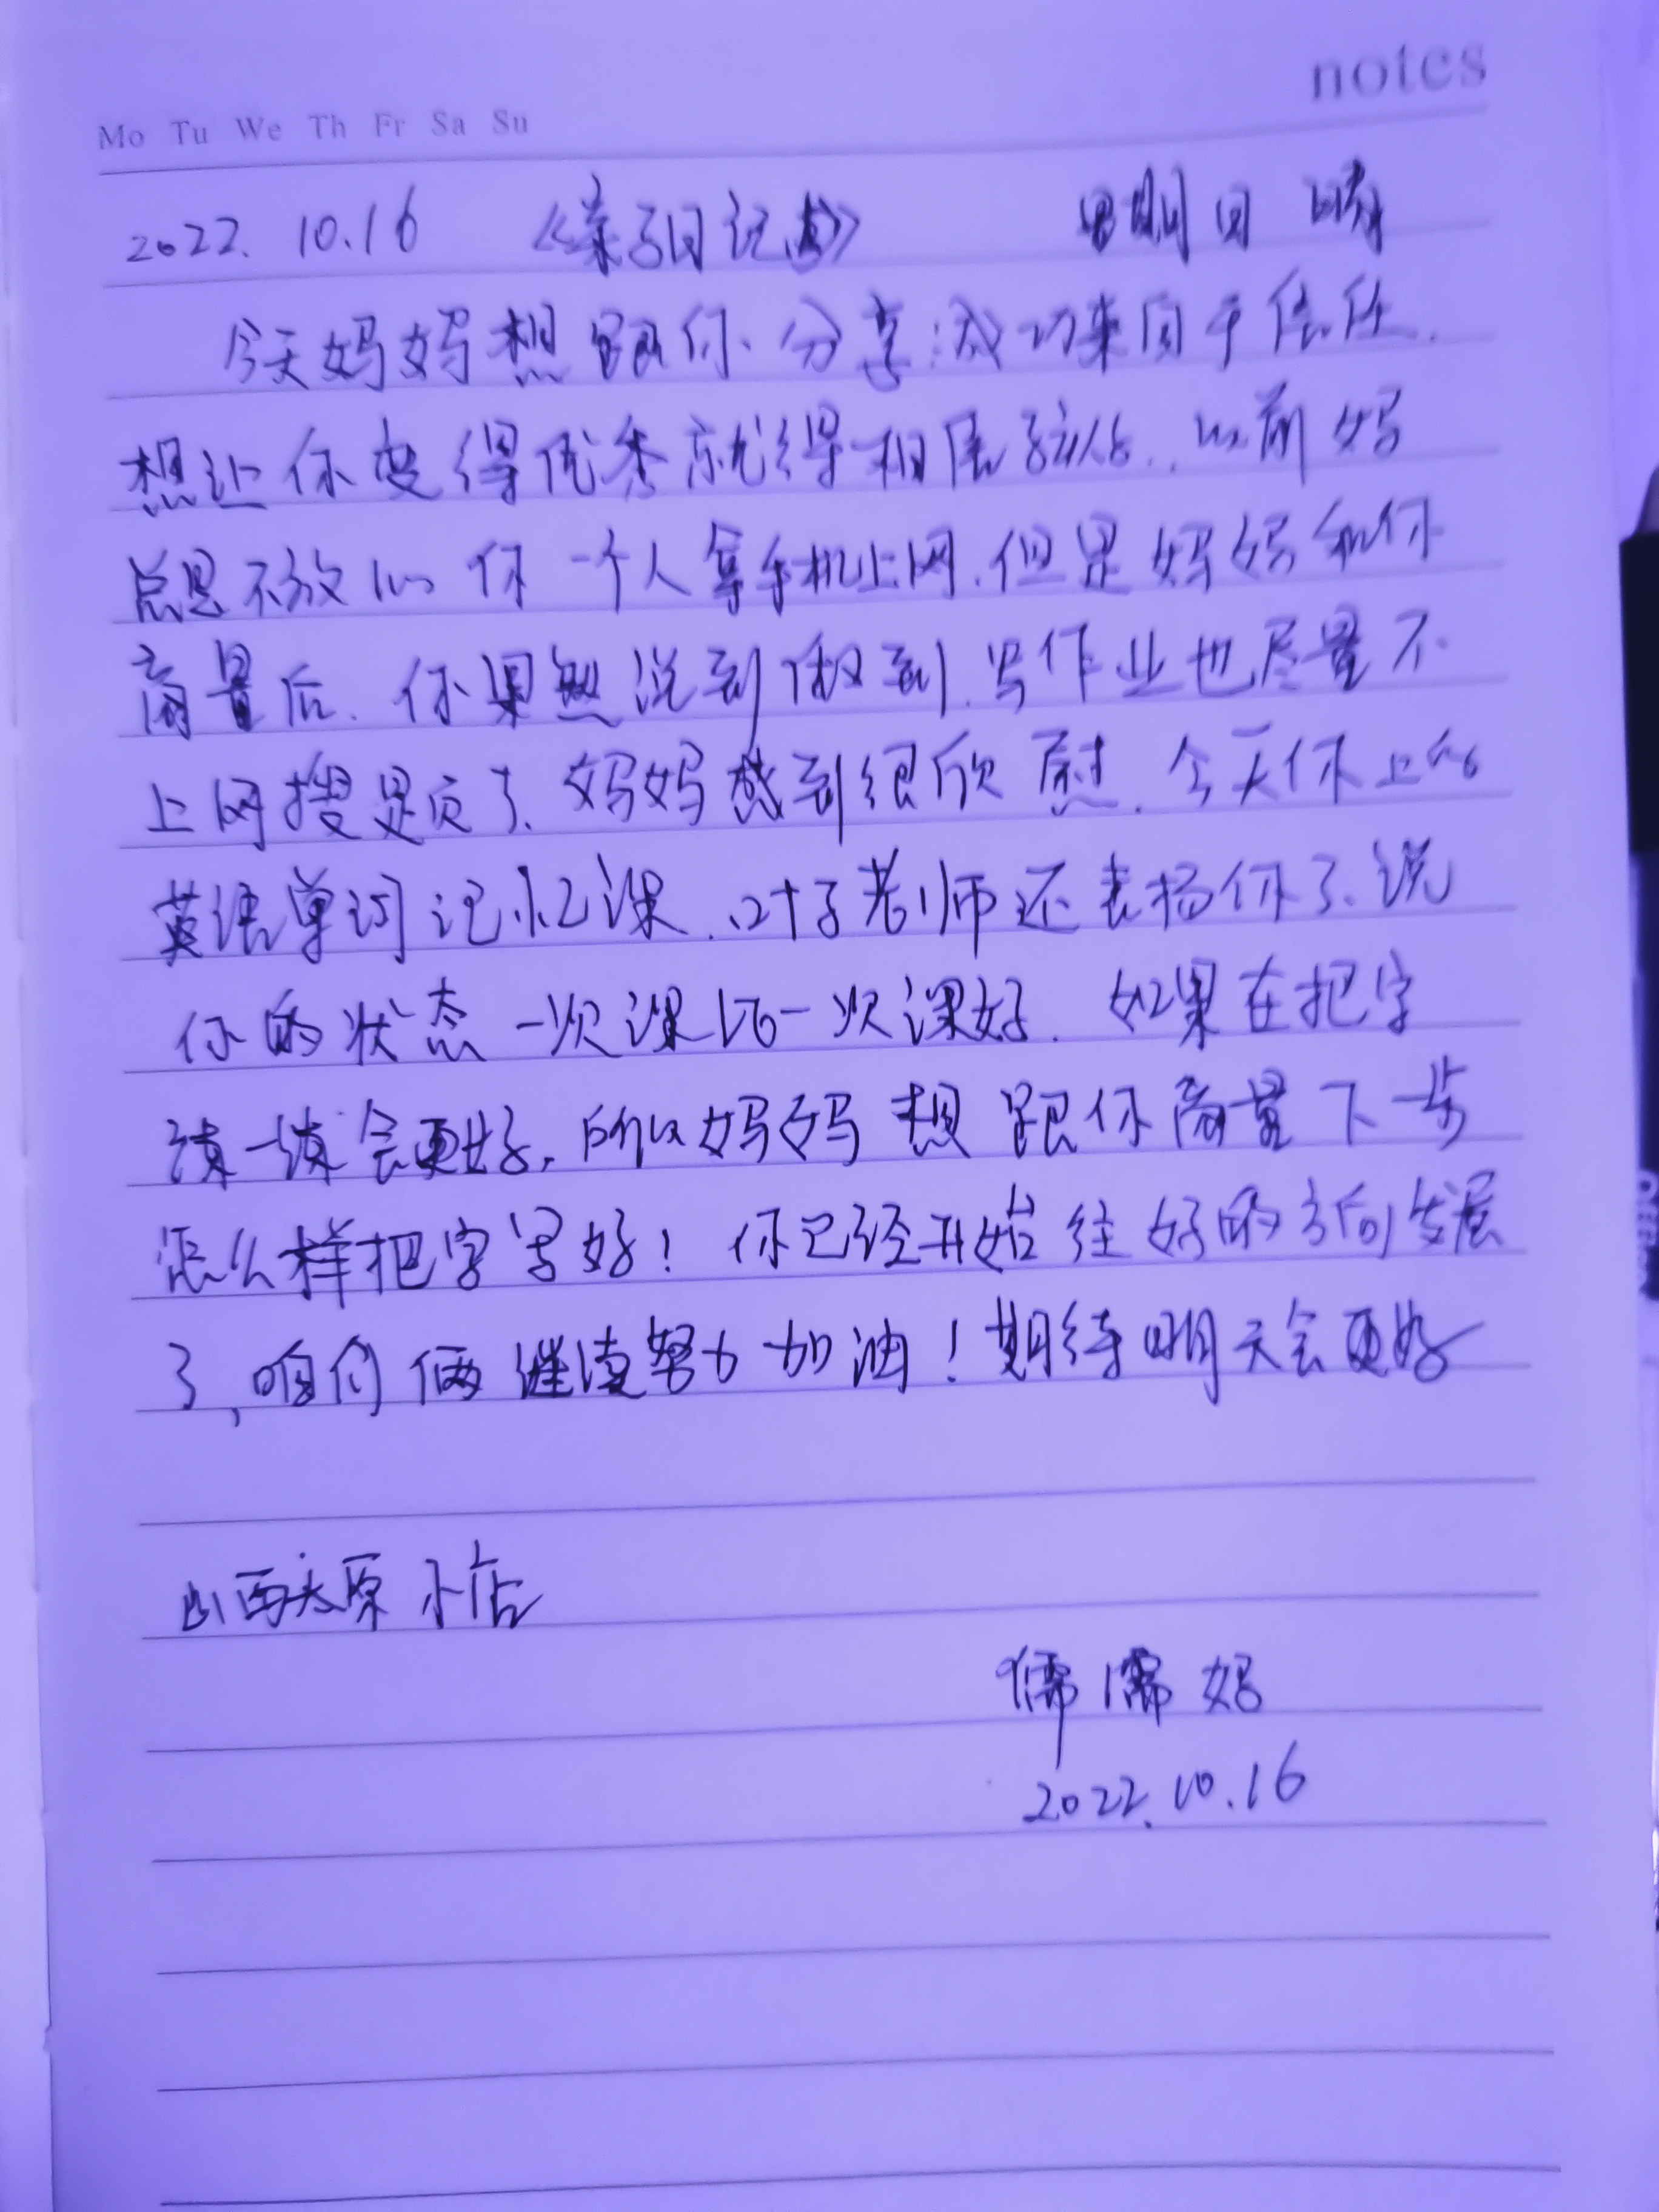 notes
Mo Tu We Th Fr Sa Su
2022. 10.16 《亲子日记》 星期日 晴
今天妈妈想跟你分享:成功来自于信任.
想让你变得优秀就得相信孩子.. 以前妈
总是不放心你一个人拿手机上网.但是妈妈和你
商量后.你果然说到做到.写作业也尽量不
上网搜是页了、妈妈感到很欣慰.今天你上的
英语单词记忆课.叶子老师还表扬你了、说
你的状态一次课比一次课好. 如果在把字
练一练会更好,所以妈妈想跟你商量下一步
怎么样把字写好!你已经开始往好的方向发展
了,咱们俩继续努力加油!期待明天会更好
山西太原小店
儒儒妈
2022.10.16